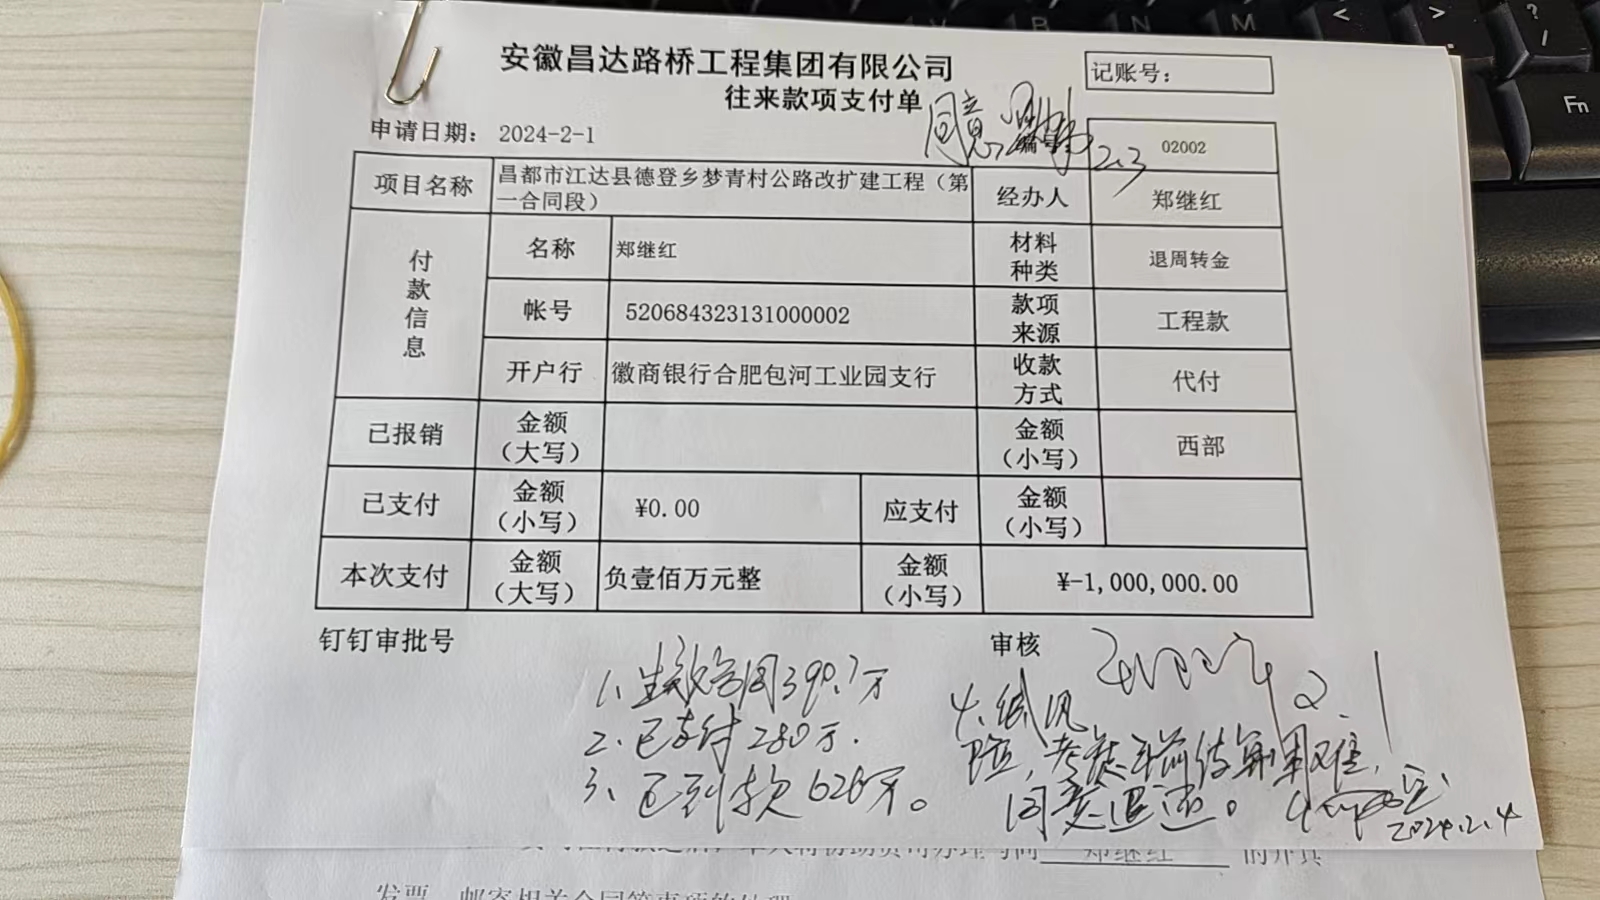 安徽昌达路桥工程集团有限公司
记账号：
往来款项支付单
同意
2.3
申请日期： 2024-2-1
02002
项目名称 昌都市江达县德登乡梦青村公路改扩建工程（第一合同段） 经办人 郑继红
付款信息 名称 郑继红 材料种类 退周转金
帐号 520684323131000002 款项来源 工程款
开户行 徽商银行合肥包河工业园支行 收款方式 代付
已报销 金额（大写） 金额（小写） 西部
已支付 金额（小写） ¥0.00 应支付 金额（小写）
本次支付 金额（大写） 负壹佰万元整 金额（小写） ¥-1,000,000.00
钉钉审批号 审核
2.1
1、生效合同390.7万
2、已支付280万.
3、已到款626万。
4、低风
险，考虑年前结算困难，
同意退还。
2024.2.4
郑继红 的开具
发票